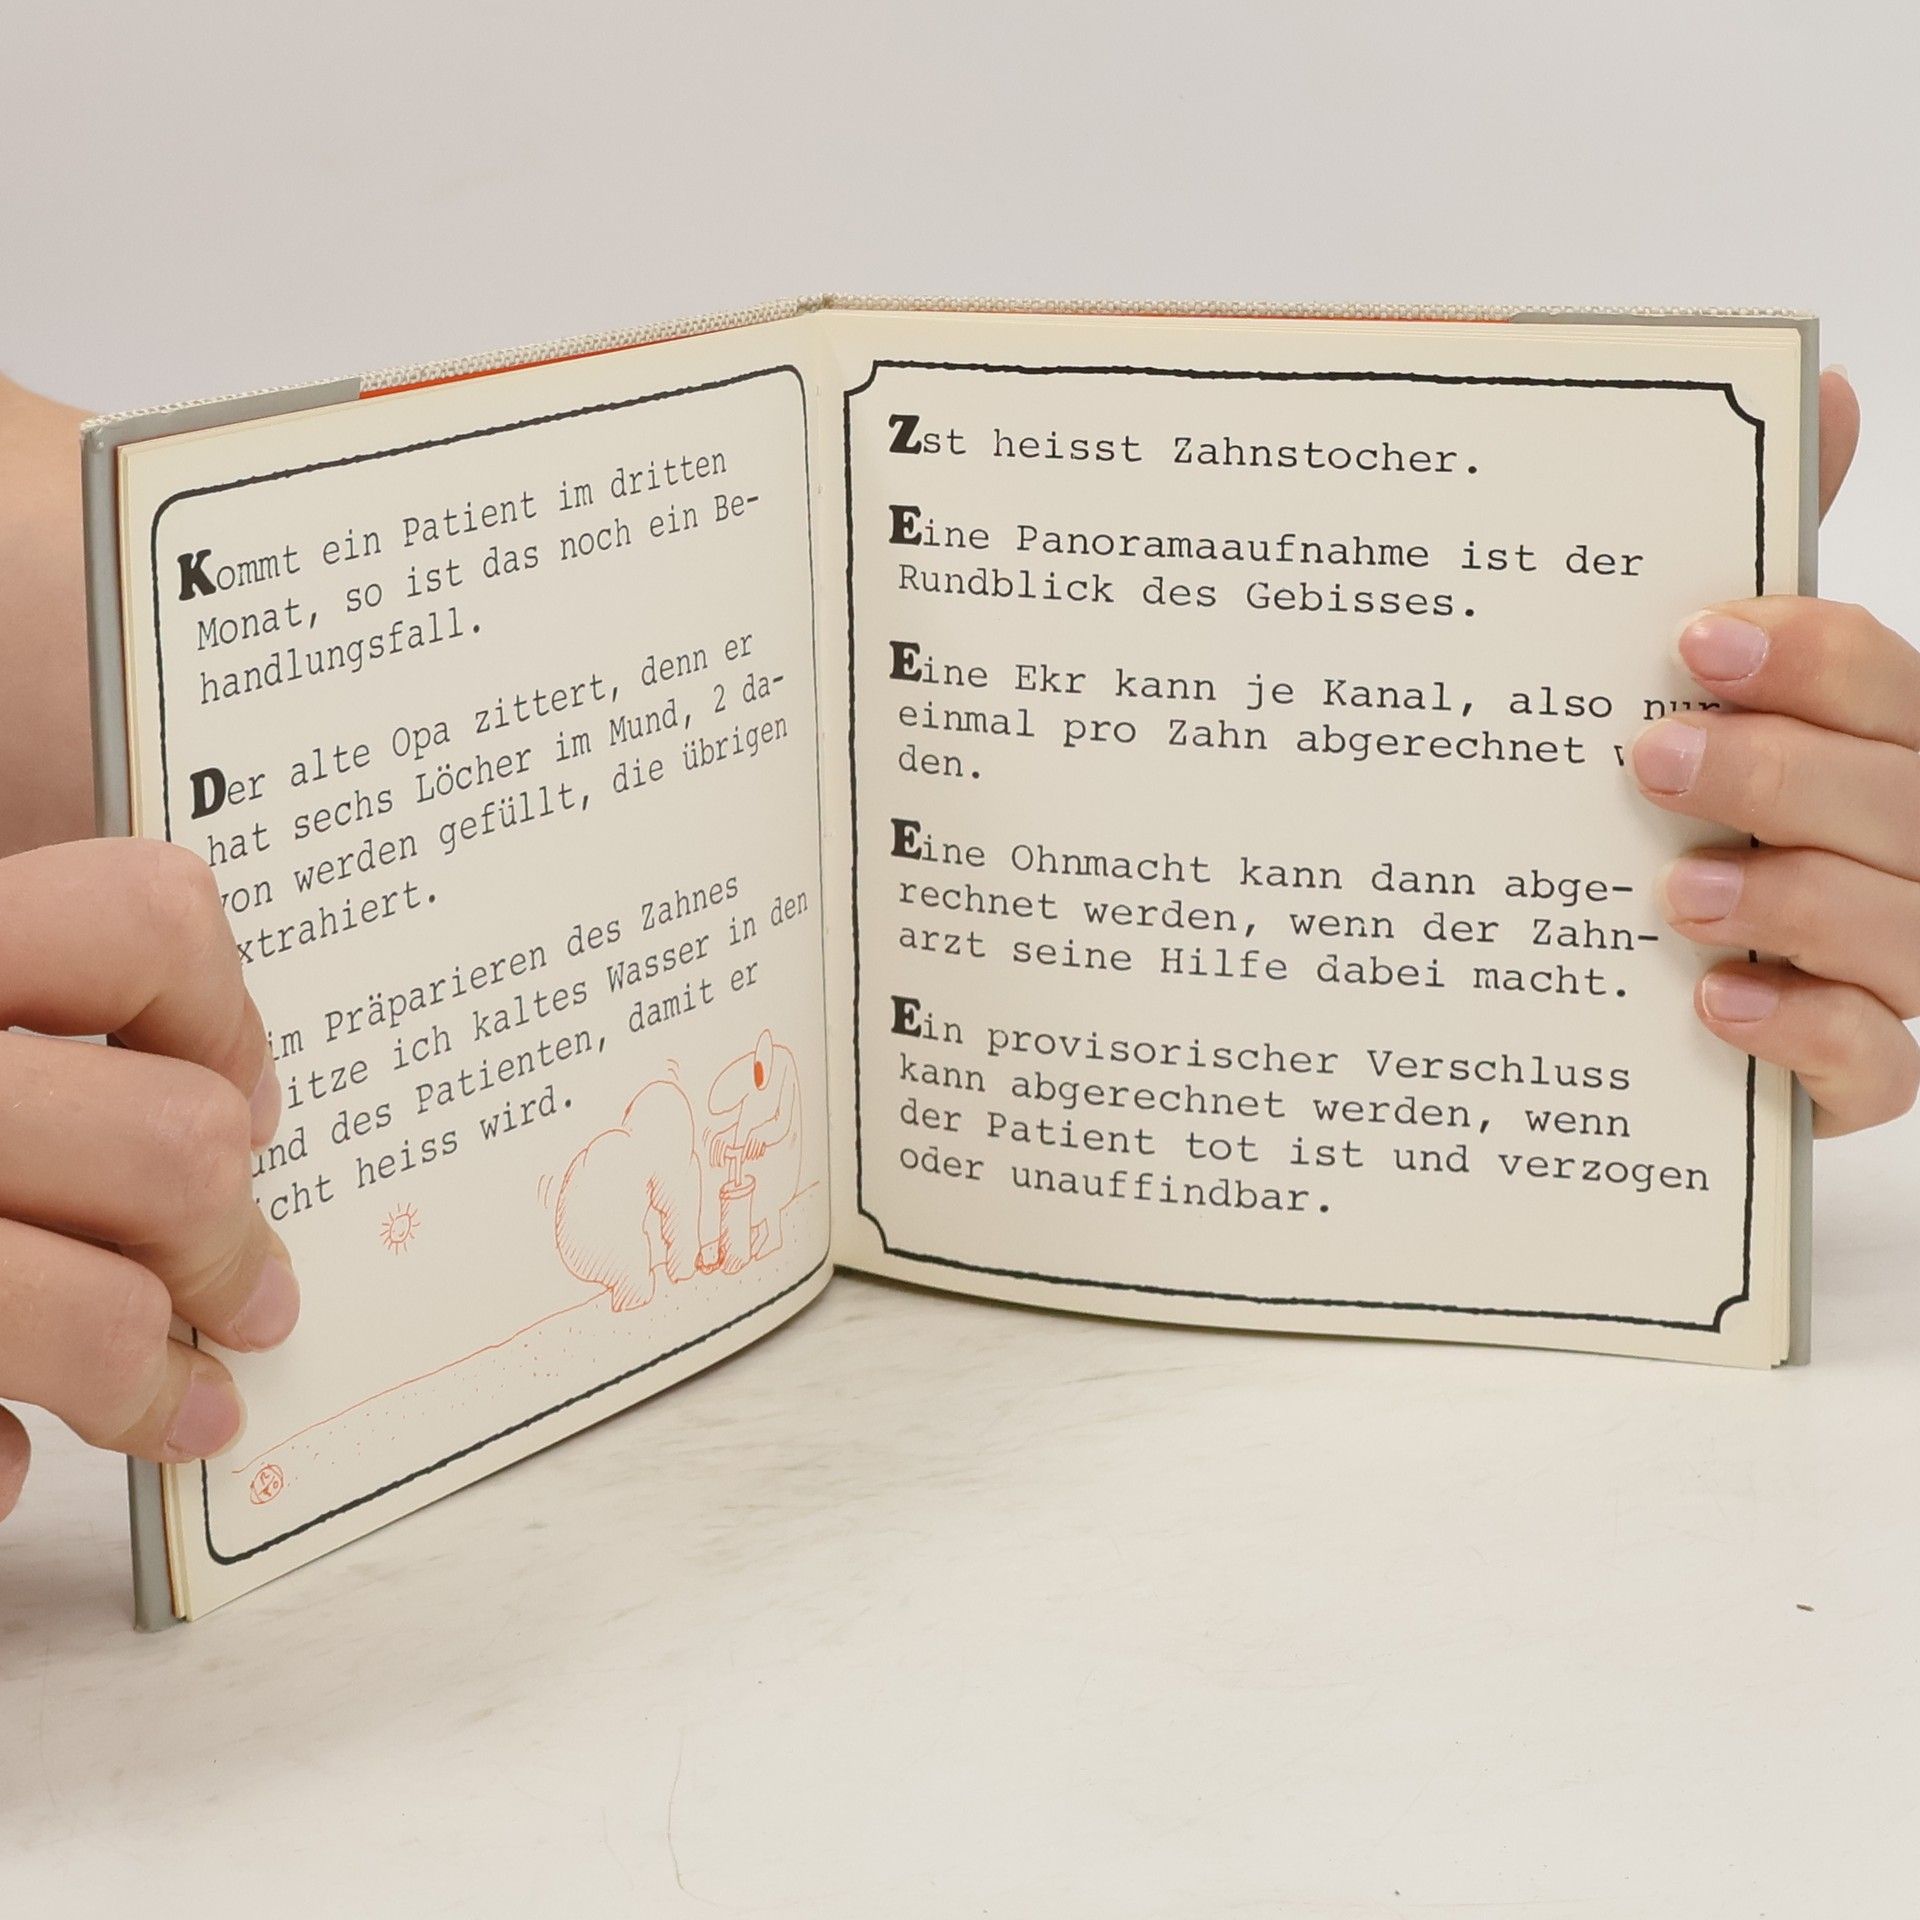 Kommt ein Patient im dritten
Monat, so ist das noch ein Be-
handlungsfall.
Der alte Opa zittert, denn er
hat sechs Löcher im Mund, 2 da-
von werden gefüllt, die übrigen
xtrahiert.
im Präparieren des Zahnes
itze ich kaltes Wasser in den
und des Patienten, damit er
icht heiss wird.
Zst heisst Zahnstocher.
Eine Panoramaaufnahme ist der
Rundblick des Gebisses.
Eine Ekr kann je Kanal, also nur
einmal pro Zahn abgerechnet
den.
Eine Ohnmacht kann dann abge-
rechnet werden, wenn der Zahn-
arzt seine Hilfe dabei macht.
Ein provisorischer Verschluss
kann abgerechnet werden, wenn
der Patient tot ist und verzogen
oder unauffindbar.